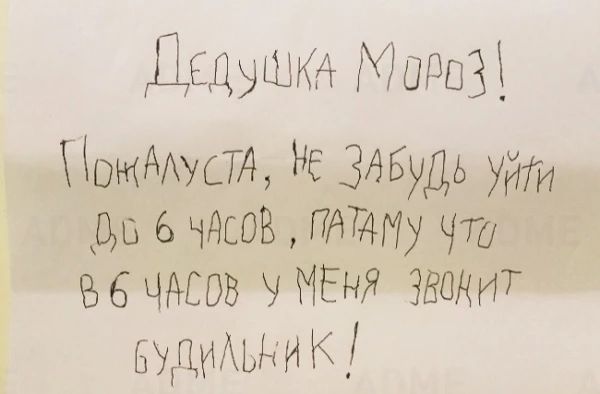 ДЕДУШКА МОРОЗ!
ПОЖАЛУСТА, НЕ ЗАБУДЬ УЙТИ
ДО 6 ЧАСОВ, ПАТАМУ ЧТО
В 6 ЧАСОВ У МЕНЯ ЗВОНИТ
БУДИЛЬНИК!